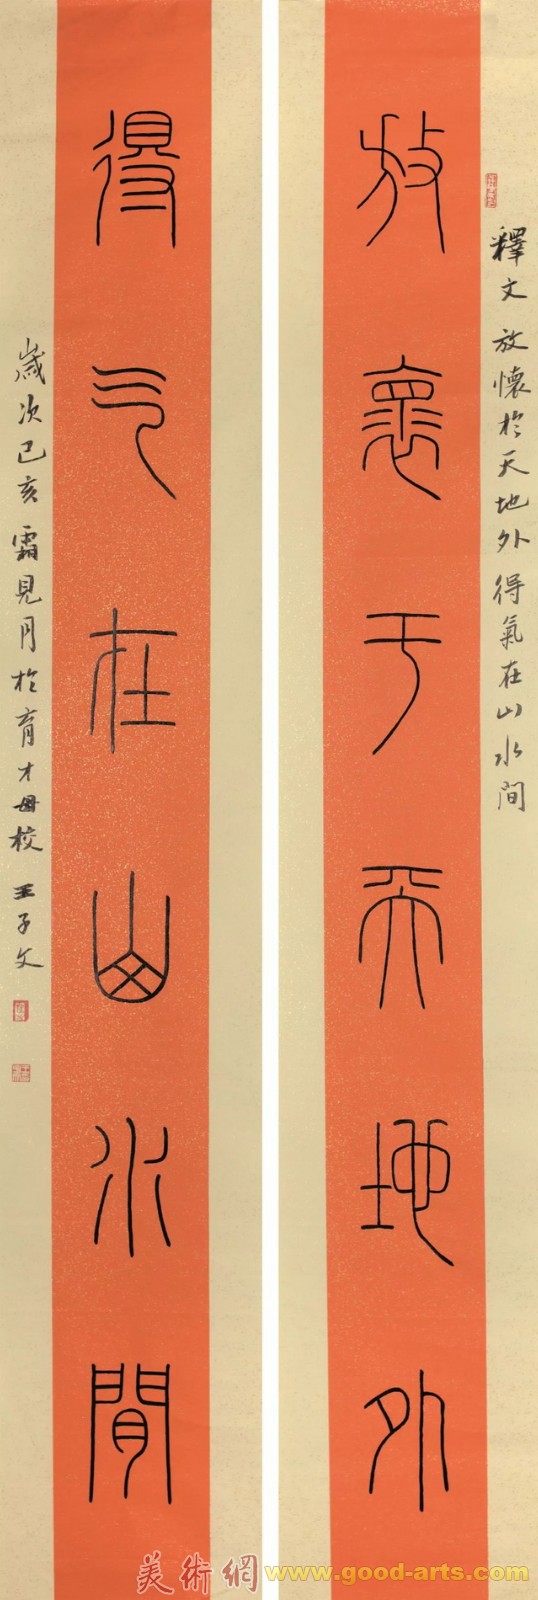 釋文 放懷於天地外 得氣在山水間
放褱于天地外
得气在山水閒
歲次己亥霜見月於育才母校 王子文
美術網 www.good-arts.com